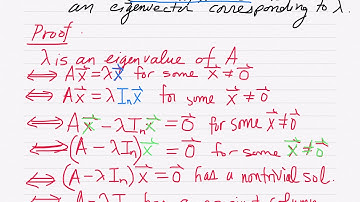 an eigenvector corresponding to λ.
Proof.
λ is an eigenvalue of A
⟺ Ax⃗ = λx⃗ for some x⃗ ≠ 0⃗
⟺ Ax⃗ = λInx⃗ for some x⃗ ≠ 0⃗
⟺ Ax⃗ − λInx⃗ = 0⃗ for some x⃗ ≠ 0⃗
⟺ (A − λIn)x⃗ = 0⃗ for some x⃗ ≠ 0⃗
⟺ (A − λIn)x⃗ = 0⃗ has a nontrivial sol.
⟺ A − λIn has a column